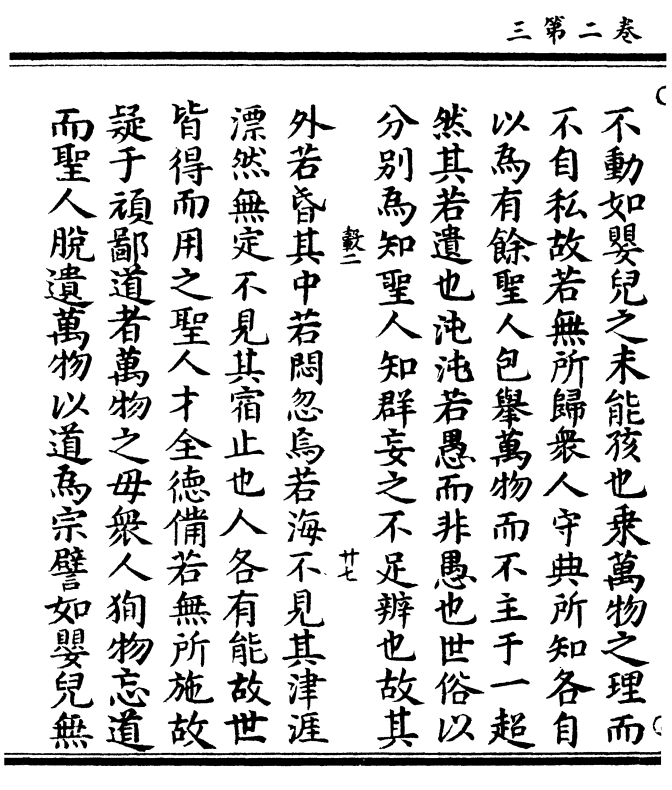 卷二第三
不動如嬰兒之未能孩也乗萬物之理而
不自私故若無所歸衆人守典所知各自
以為有餘聖人包舉萬物而不主于一超
然其若遺也沌沌若愚而非愚也世俗以
分别為知聖人知群妄之不足辨也故其
彀二
廿七
外若昏其中若悶忽焉若海不見其津涯
漂然無定不見其宿止也人各有能故世
皆得而用之聖人才全徳備若無所施故
疑于頑鄙道者萬物之母衆人狥物忘道
而聖人脫遺萬物以道為宗譬如嬰兒無